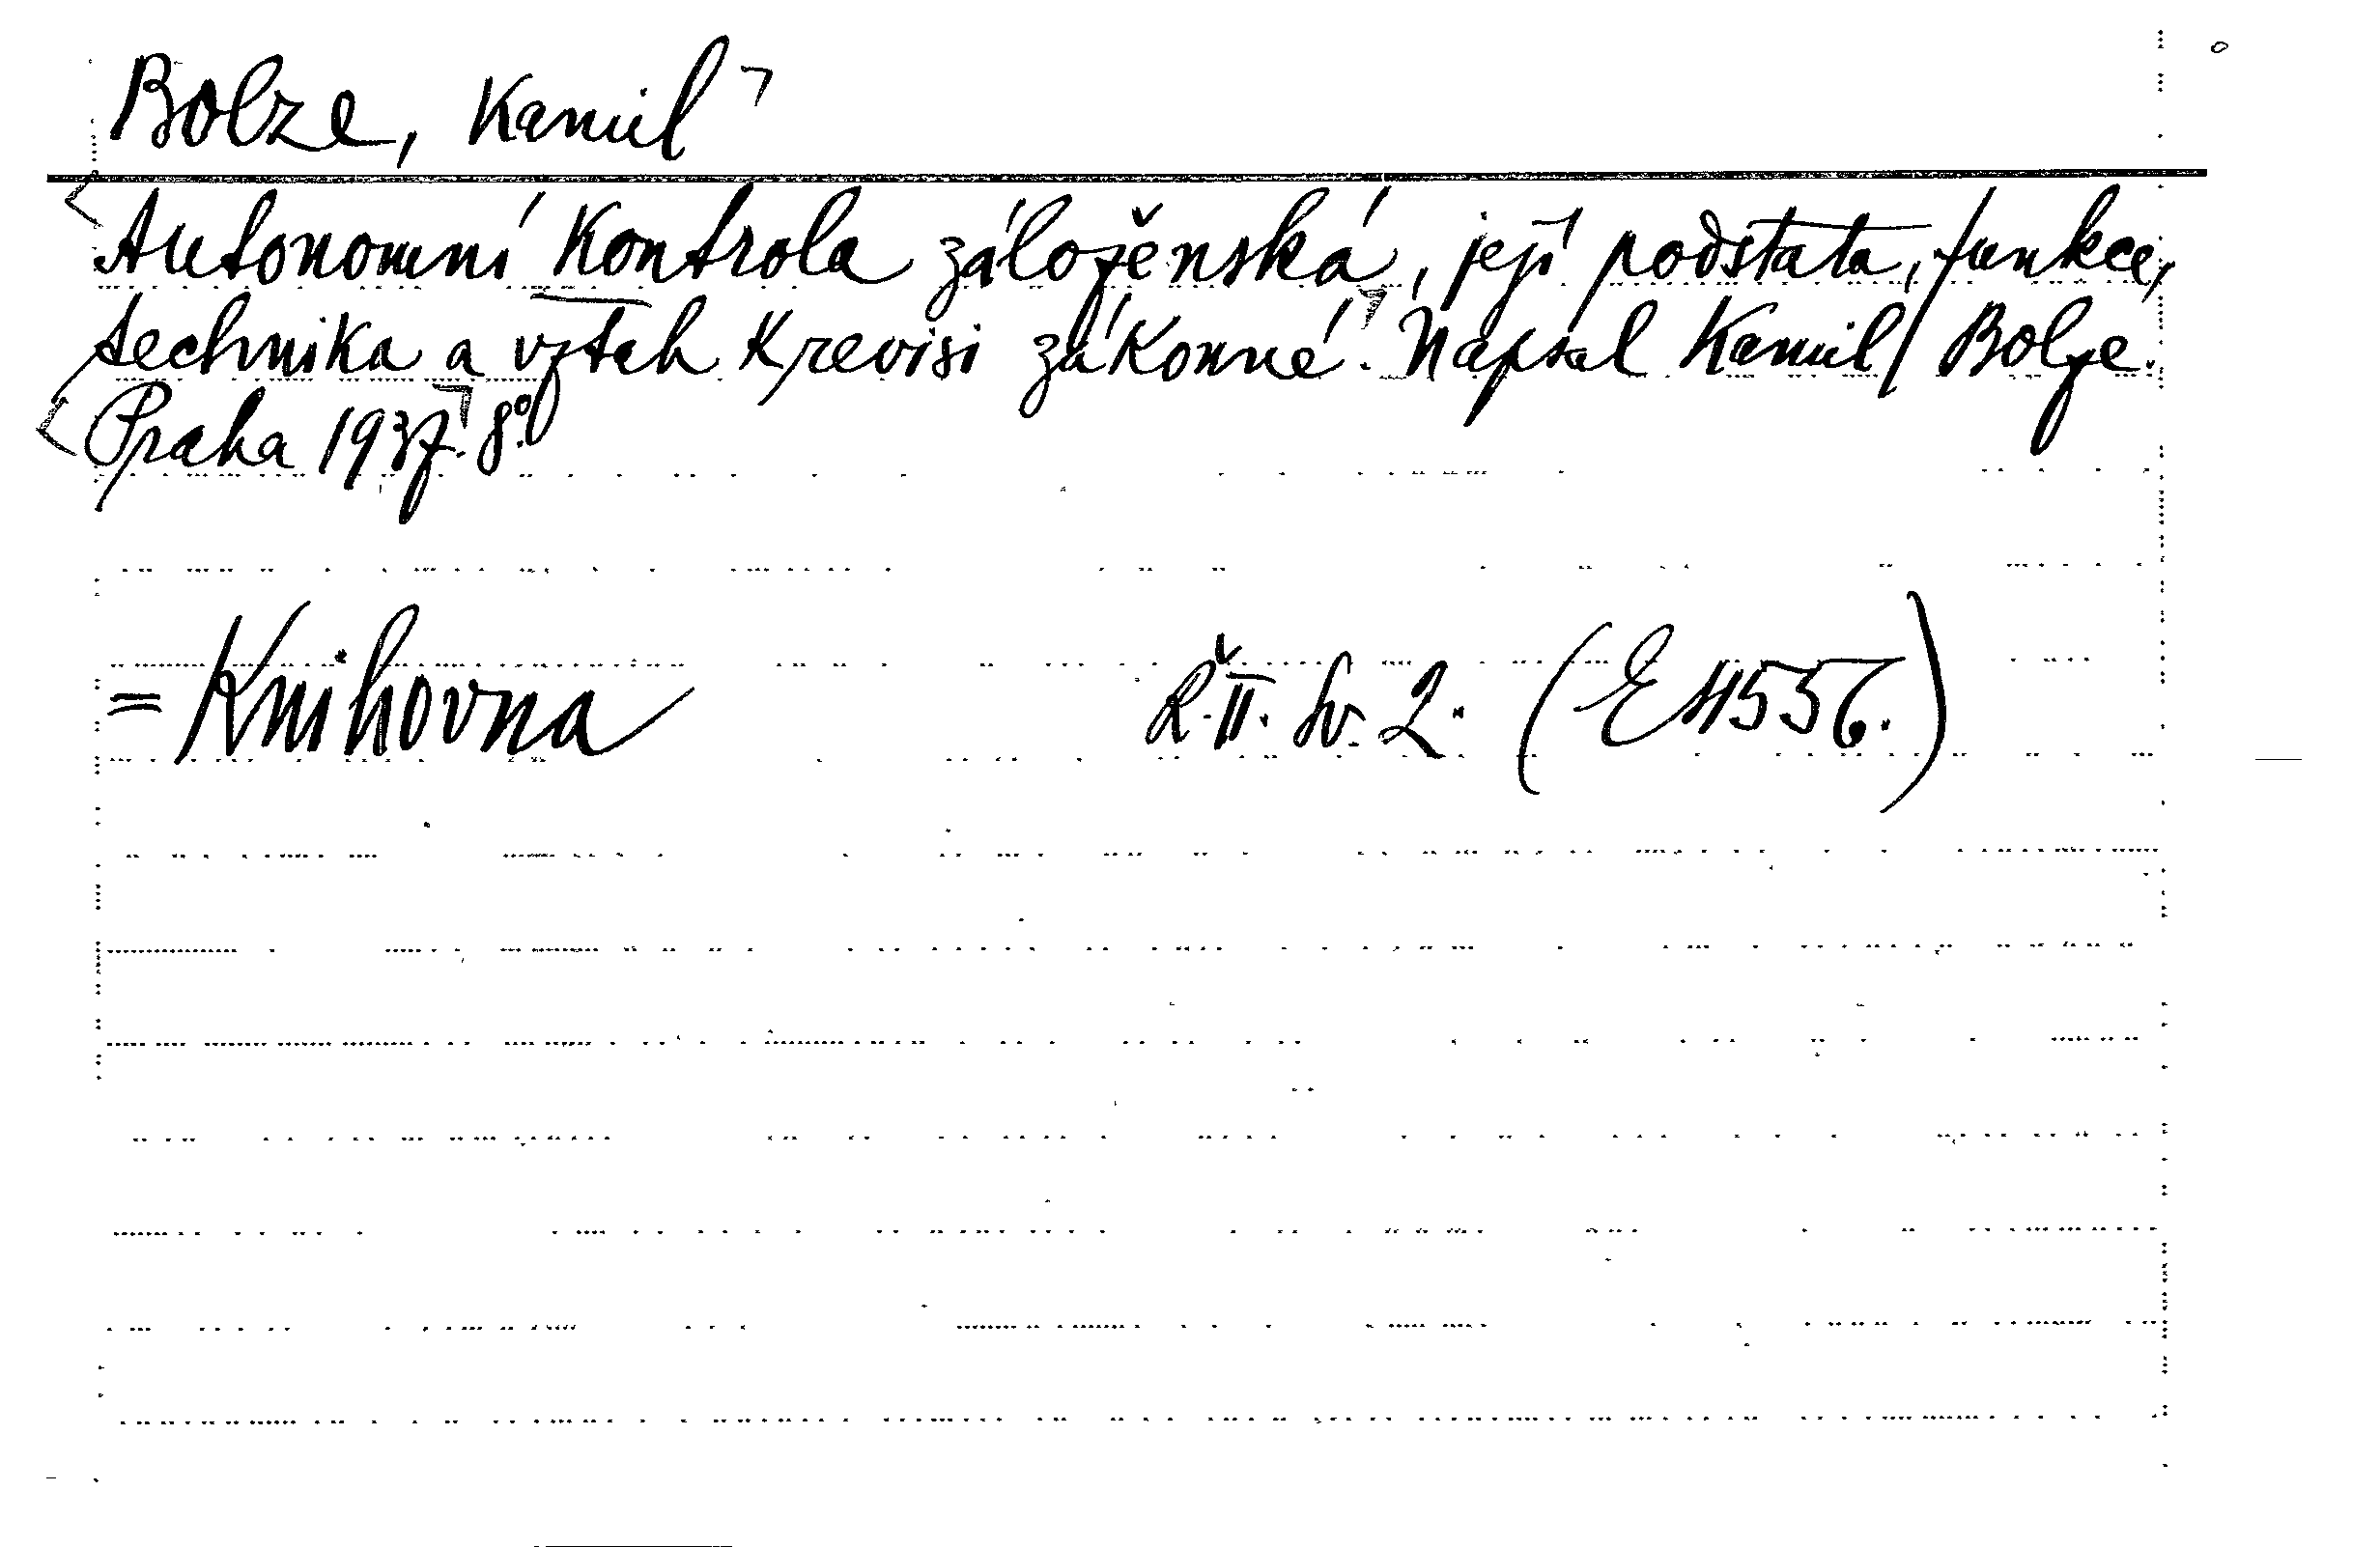 Bolze, Kamil
Autonomní kontrola záloženská, její podstata, funkce,
technika a vztah k revisi zákonné. Napsal Kamil Bolze.
Praha 1937. 8°.
= Knihovna Ř. II. Sv. 2. (E 4556.)